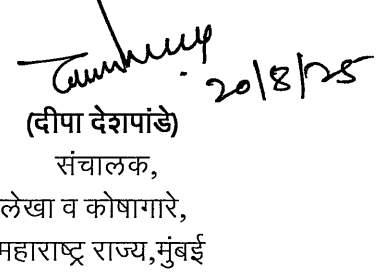 20/8/25
(दीपा देशपांडे)
संचालक,
लेखा व कोषागारे,
महाराष्ट्र राज्य,मुंबई